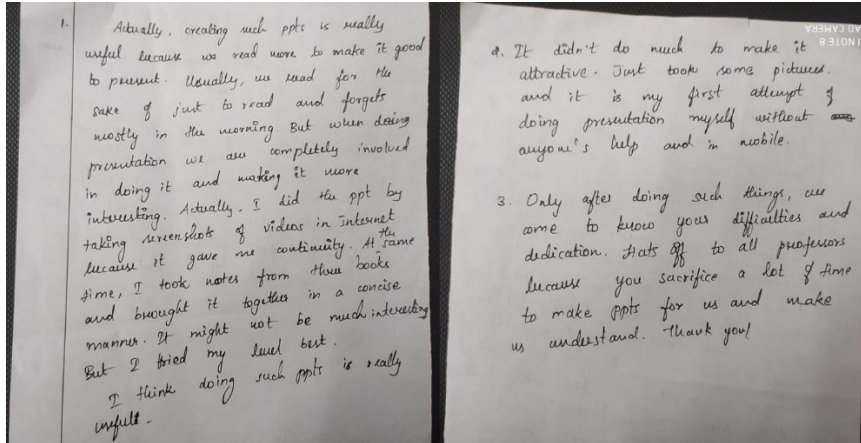 1. Actually, creating such ppts is really
useful because we read more to make it good
to present. Usually, we read for the
sake of just to read and forgets
mostly in the morning. But when doing
presentation we are completely involved
in doing it and making it more
interesting. Actually, I did the ppt by
taking screenshots of videos in Internet
because it gave me continuity. At the same
time, I took notes from three books
and brought it together in a concise
manner. It might not be much interesting
But I tried my level best.
I think doing such ppts is really
useful.
2. It didn't do much to make it
attractive. Just took some pictures.
and it is my first attempt of
doing presentation myself without
anyone's help and in mobile.
3. Only after doing such things, we
come to know your difficulties and
dedication. Hats off to all professors
because you sacrifice a lot of time
to make ppts for us and make
us understand. Thank you!